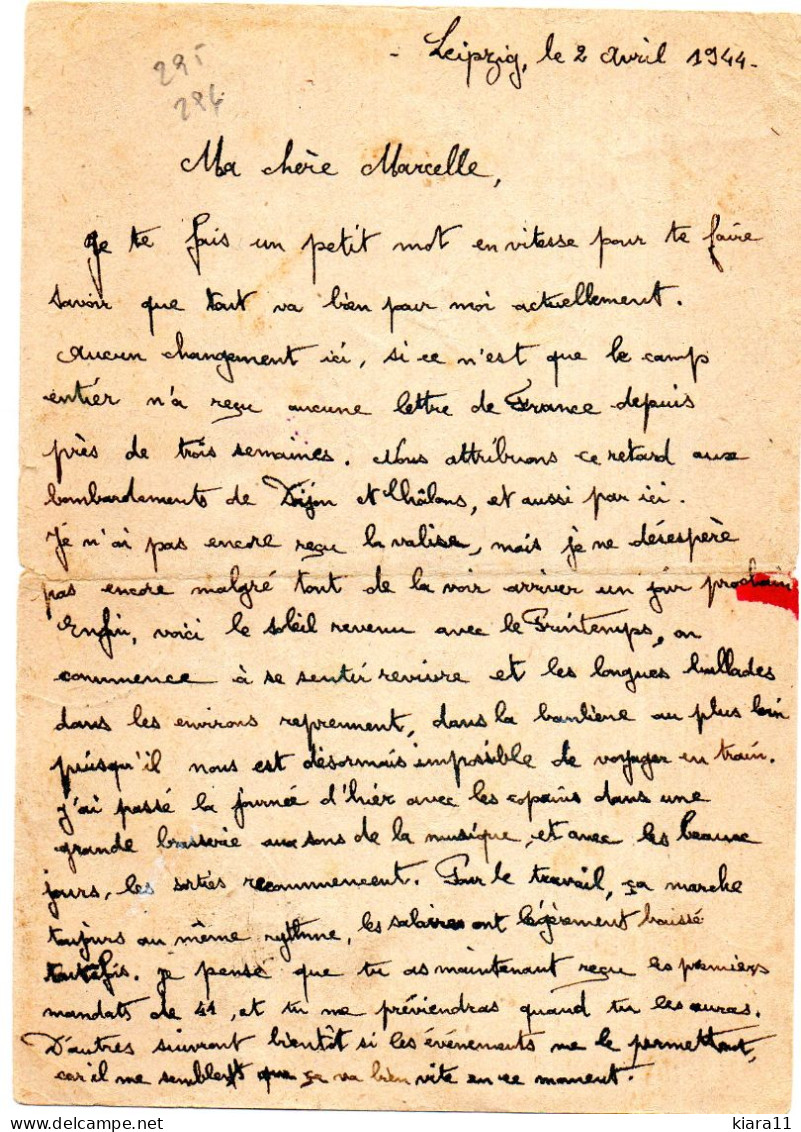 - Leipzig, le 2 avril 1944 -
295
294
Ma chère Marcelle,
Je te fais un petit mot en vitesse pour te faire
savoir que tout va bien pour moi actuellement.
Aucun changement ici, si ce n'est que le camp
entier n'a reçu aucune lettre de France depuis
près de trois semaines. Nous attribuons ce retard aux
bombardements de Dijon et Châlons, et aussi par ici.
Je n'ai pas encore reçu la valise, mais je ne désespère
pas encore malgré tout de la voir arriver un jour prochain
Enfin, voici le soleil revenu avec le Printemps, on
commence à se sentir revivre et les longues ballades
dans les environs reprennent, dans la banlieue au plus loin
puisqu'il nous est désormais impossible de voyager en train.
J'ai passé la journée d'hier avec les copains dans une
grande brasserie aux sons de la musique, et avec les beaux
jours, les sorties recommencent. Pour le travail, ça marche
toujours au même rythme, les salaires ont légèrement baissé
toutefois. Je pense que tu as maintenant reçu les premiers
mandats de 44, et tu me préviendras quand tu les auras.
D'autres suivront bientôt si les événements me le permettent,
car il me semble que ça va bien vite en ce moment.
kiara11